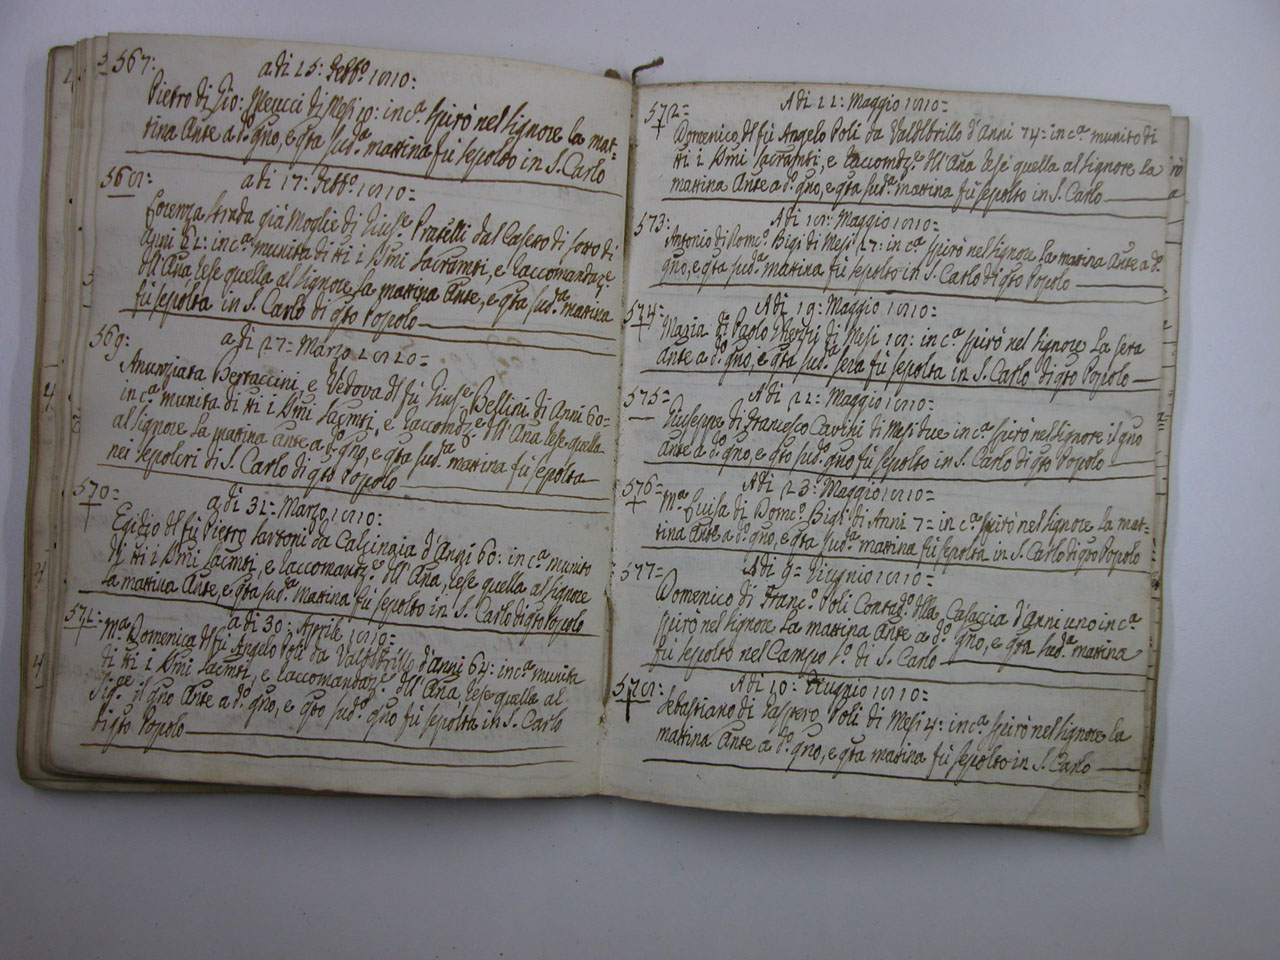 567:
a dì 15: Febb.º 1810:
Pietro di Gio: Meucci di Mesi 10: in c.ª spirò nel Signore la mat-
tina Ante a d.º gno, e qta sud.ª mattina fù sepolto in S. Carlo
568:
a dì 17: Febb.º 1810=
Lorenza Strada già Moglie di Gius.e Pratelli dal Caseto di sotto di
Anni 82: in c.ª munita di tti i SSmi Sacramti, e Raccomandaz.e
dll'Ana rese quella al Signore la mattina Ante, e qta sud.ª mattina
fù sepolta in S. Carlo di qto Popolo
569:
a dì 27= Marzo 1810=
Anunziata Bertaccini, e Vedova dl fù Gius.e Bellini di Anni 60=
in c.ª munita di tti i SSmi Sacmti, e Raccomdz.e dll'Ana rese quella
al Signore la mattina Ante a d.º gno, e qta sud.ª mattina fù sepolta
nei sepolcri di S. Carlo di qto Popolo
570=
a dì 31= Marzo 1810:
Egidio dl fù Pietro Sartoni da Calcinaia d'Anni 60: in c.ª munito
di tti i SSmi Sacmti, e Raccomandz.e dll'Ana, rese quella al Signore
la mattina Ante, e qta sud.ª mattina fù sepolto in S. Carlo di qto Popolo
571=
a dì 30: Aprile 1810=
M.ª Domenica dl fù Angelo Poli da Valdibrillo d'anni 64: in c.ª munita
di tti i SSmi Sacmti, e Raccomandaz.e dll'Ana, rese quella al
Sig.re il gno Ante a d.º gno, e qto sud.º gno fù sepolta in S. Carlo
di qto Popolo
572=
A dì 11: Maggio 1810=
Domenico dl fù Angelo Poli da Valdibrillo d'Anni 74= in c.ª munito di
tti i SSmi Sacramti, e Raccomdz.e dll'Ana rese quella al Signore la
mattina Ante a d.º gno, e qta sud.ª mattina fù sepolto in S. Carlo
573:
A dì 18: Maggio 1810=
Antonio di Dom.co Bigi di Mesi 27: in c.ª spirò nel Signore la mattina Ante a d.º
gno, e qta sud.ª mattina fù sepolto in S. Carlo di qto Popolo
574=
A dì 19: Maggio 1810=
Maria di Paolo di Mesi 18: in c.ª spirò nel Signore la sera
Ante a d.º gno, e qta sud.ª sera fù sepolta in S. Carlo di qto Popolo
575=
A dì 22: Maggio 1810=
Giuseppe di Francesco Cavini di Mesi due in c.ª spirò nel Signore il gno
Ante a d.º gno, e qto sud.º gno fù sepolto in S. Carlo di qto Popolo
576=
A dì 23: Maggio 1810=
M.ª Luisa di Dom.co Bigi di Anni 7= in c.ª spirò nel Signore la mat-
tina Ante a d.º gno, e qta sud.ª mattina fù sepolta in S. Carlo di qto Popolo
577=
A dì 9= Giugnio 1810=
Domenico di Franc.º Poli Contad.º dlla Casaccia d'Anni uno in c.ª
spirò nel Signore la mattina Ante a d.º gno, e qta sud.ª mattina
fù sepolto nel Campo S.º di S. Carlo
578:
A dì 10: Giugnio 1810=
Sebastiano di Gaspero Poli di Mesi 4: in c.ª spirò nel Signore la
mattina Ante a d.º gno, e qta mattina fù sepolto in S. Carlo